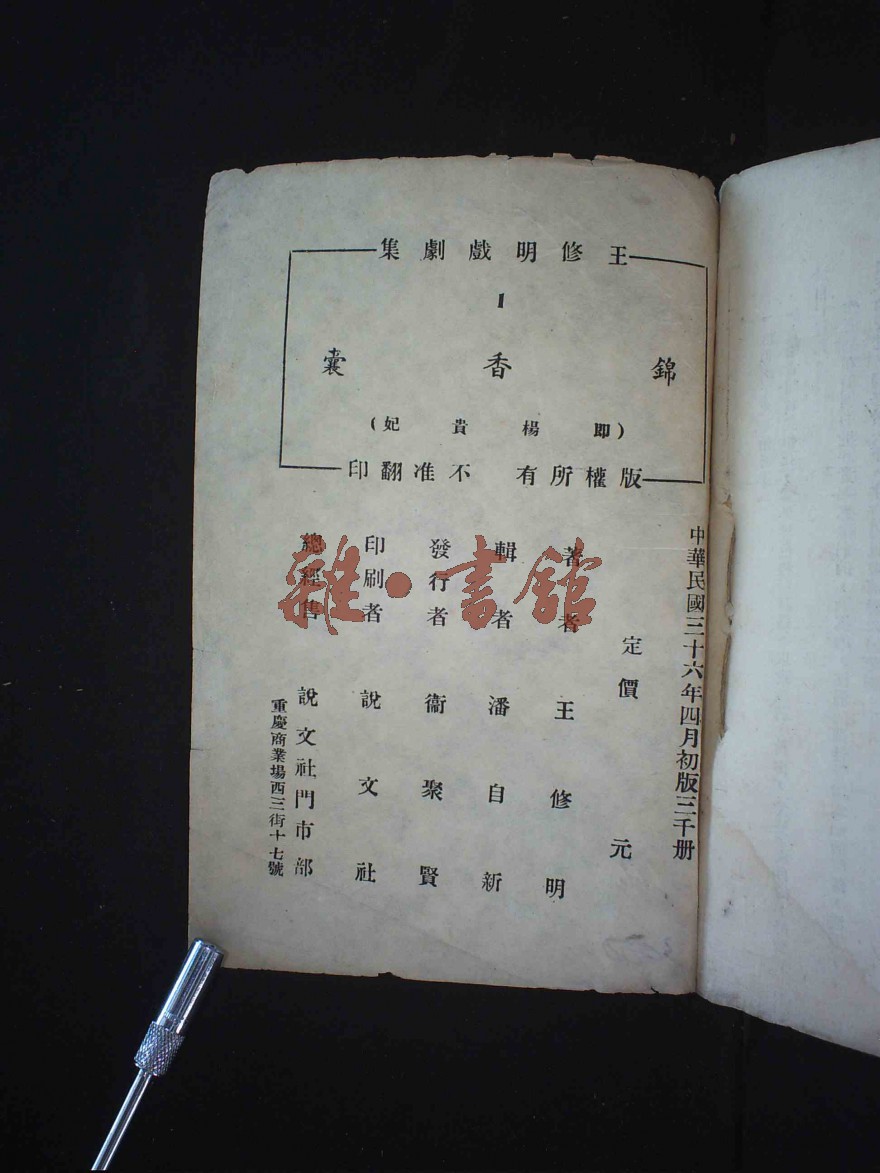 王修明戲劇集
1
錦香囊
(即楊貴妃)
版權所有 不准翻印
中華民國三十六年四月初版三千册
定價 元
著者 王修明
輯者 潘自新
發行者 衞聚賢
印刷者 說文社
總經售 說文社門市部
重慶商業場西三街十七號
雜·書館